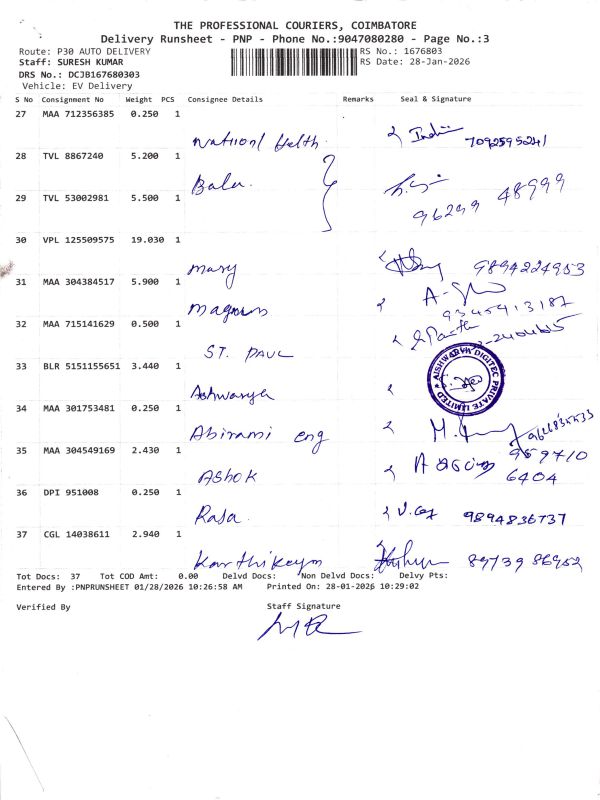 THE PROFESSIONAL COURIERS, COIMBATORE
Delivery Runsheet - PNP - Phone No.:9047080280 - Page No.:3
Route: P30 AUTO DELIVERY RS No.: 1676803
Staff: SURESH KUMAR RS Date: 28-Jan-2026
DRS No.: DCJB167680303
Vehicle: EV Delivery
S No Consignment No Weight PCS Consignee Details Remarks Seal & Signature
27 MAA 712356385 0.250 1
National Health 7092595241
28 TVL 8867240 5.200 1
Bala
29 TVL 53002981 5.500 1
96299 48999
30 VPL 125509575 19.030 1
mary 9894224953
31 MAA 304384517 5.900 1
magnum 9345913187
32 MAA 715141629 0.500 1
ST. PAUL
33 BLR 5151155651 3.440 1
Ashwarya AISHWARYA DIGITEC PRIVATE LIMITED
34 MAA 301753481 0.250 1
Abirami eng
35 MAA 304549169 2.430 1
ASHOK 959710
6404
36 DPI 951008 0.250 1
Raja 9894836737
37 CGL 14038611 2.940 1
Karthikeyan 89739 86952
Tot Docs: 37 Tot COD Amt: 0.00 Delvd Docs: Non Delvd Docs: Delvy Pts:
Entered By :PNPRUNSHEET 01/28/2026 10:26:58 AM Printed On: 28-01-2026 10:29:02
Verified By Staff Signature